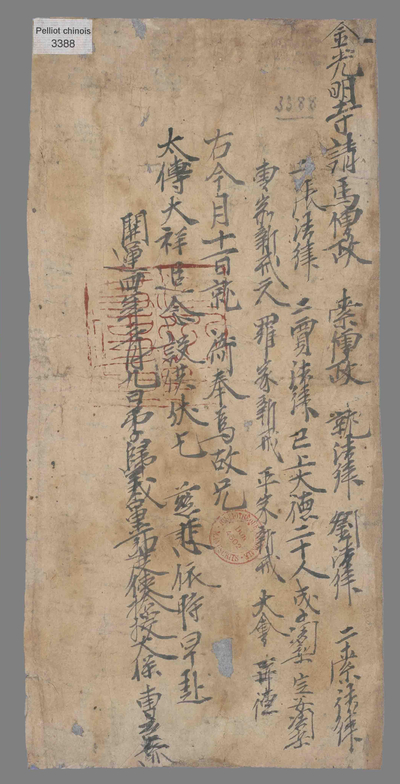 Pelliot chinois
3388
3388
金光明寺請馬僧政 索僧政 就法律 劉法律 二索法律
二張法律 二賈法律 已上大德二十人 戒子闍梨 定女闍梨
曹家新戒 羅家新戒 氾家新戒 大會
右今月十一日就 衙奉為故兄
太傅大祥追念設供伏乞 慈悲依時早赴
開運四年三月九日弟子歸義軍節度使檢校太保曹元忠